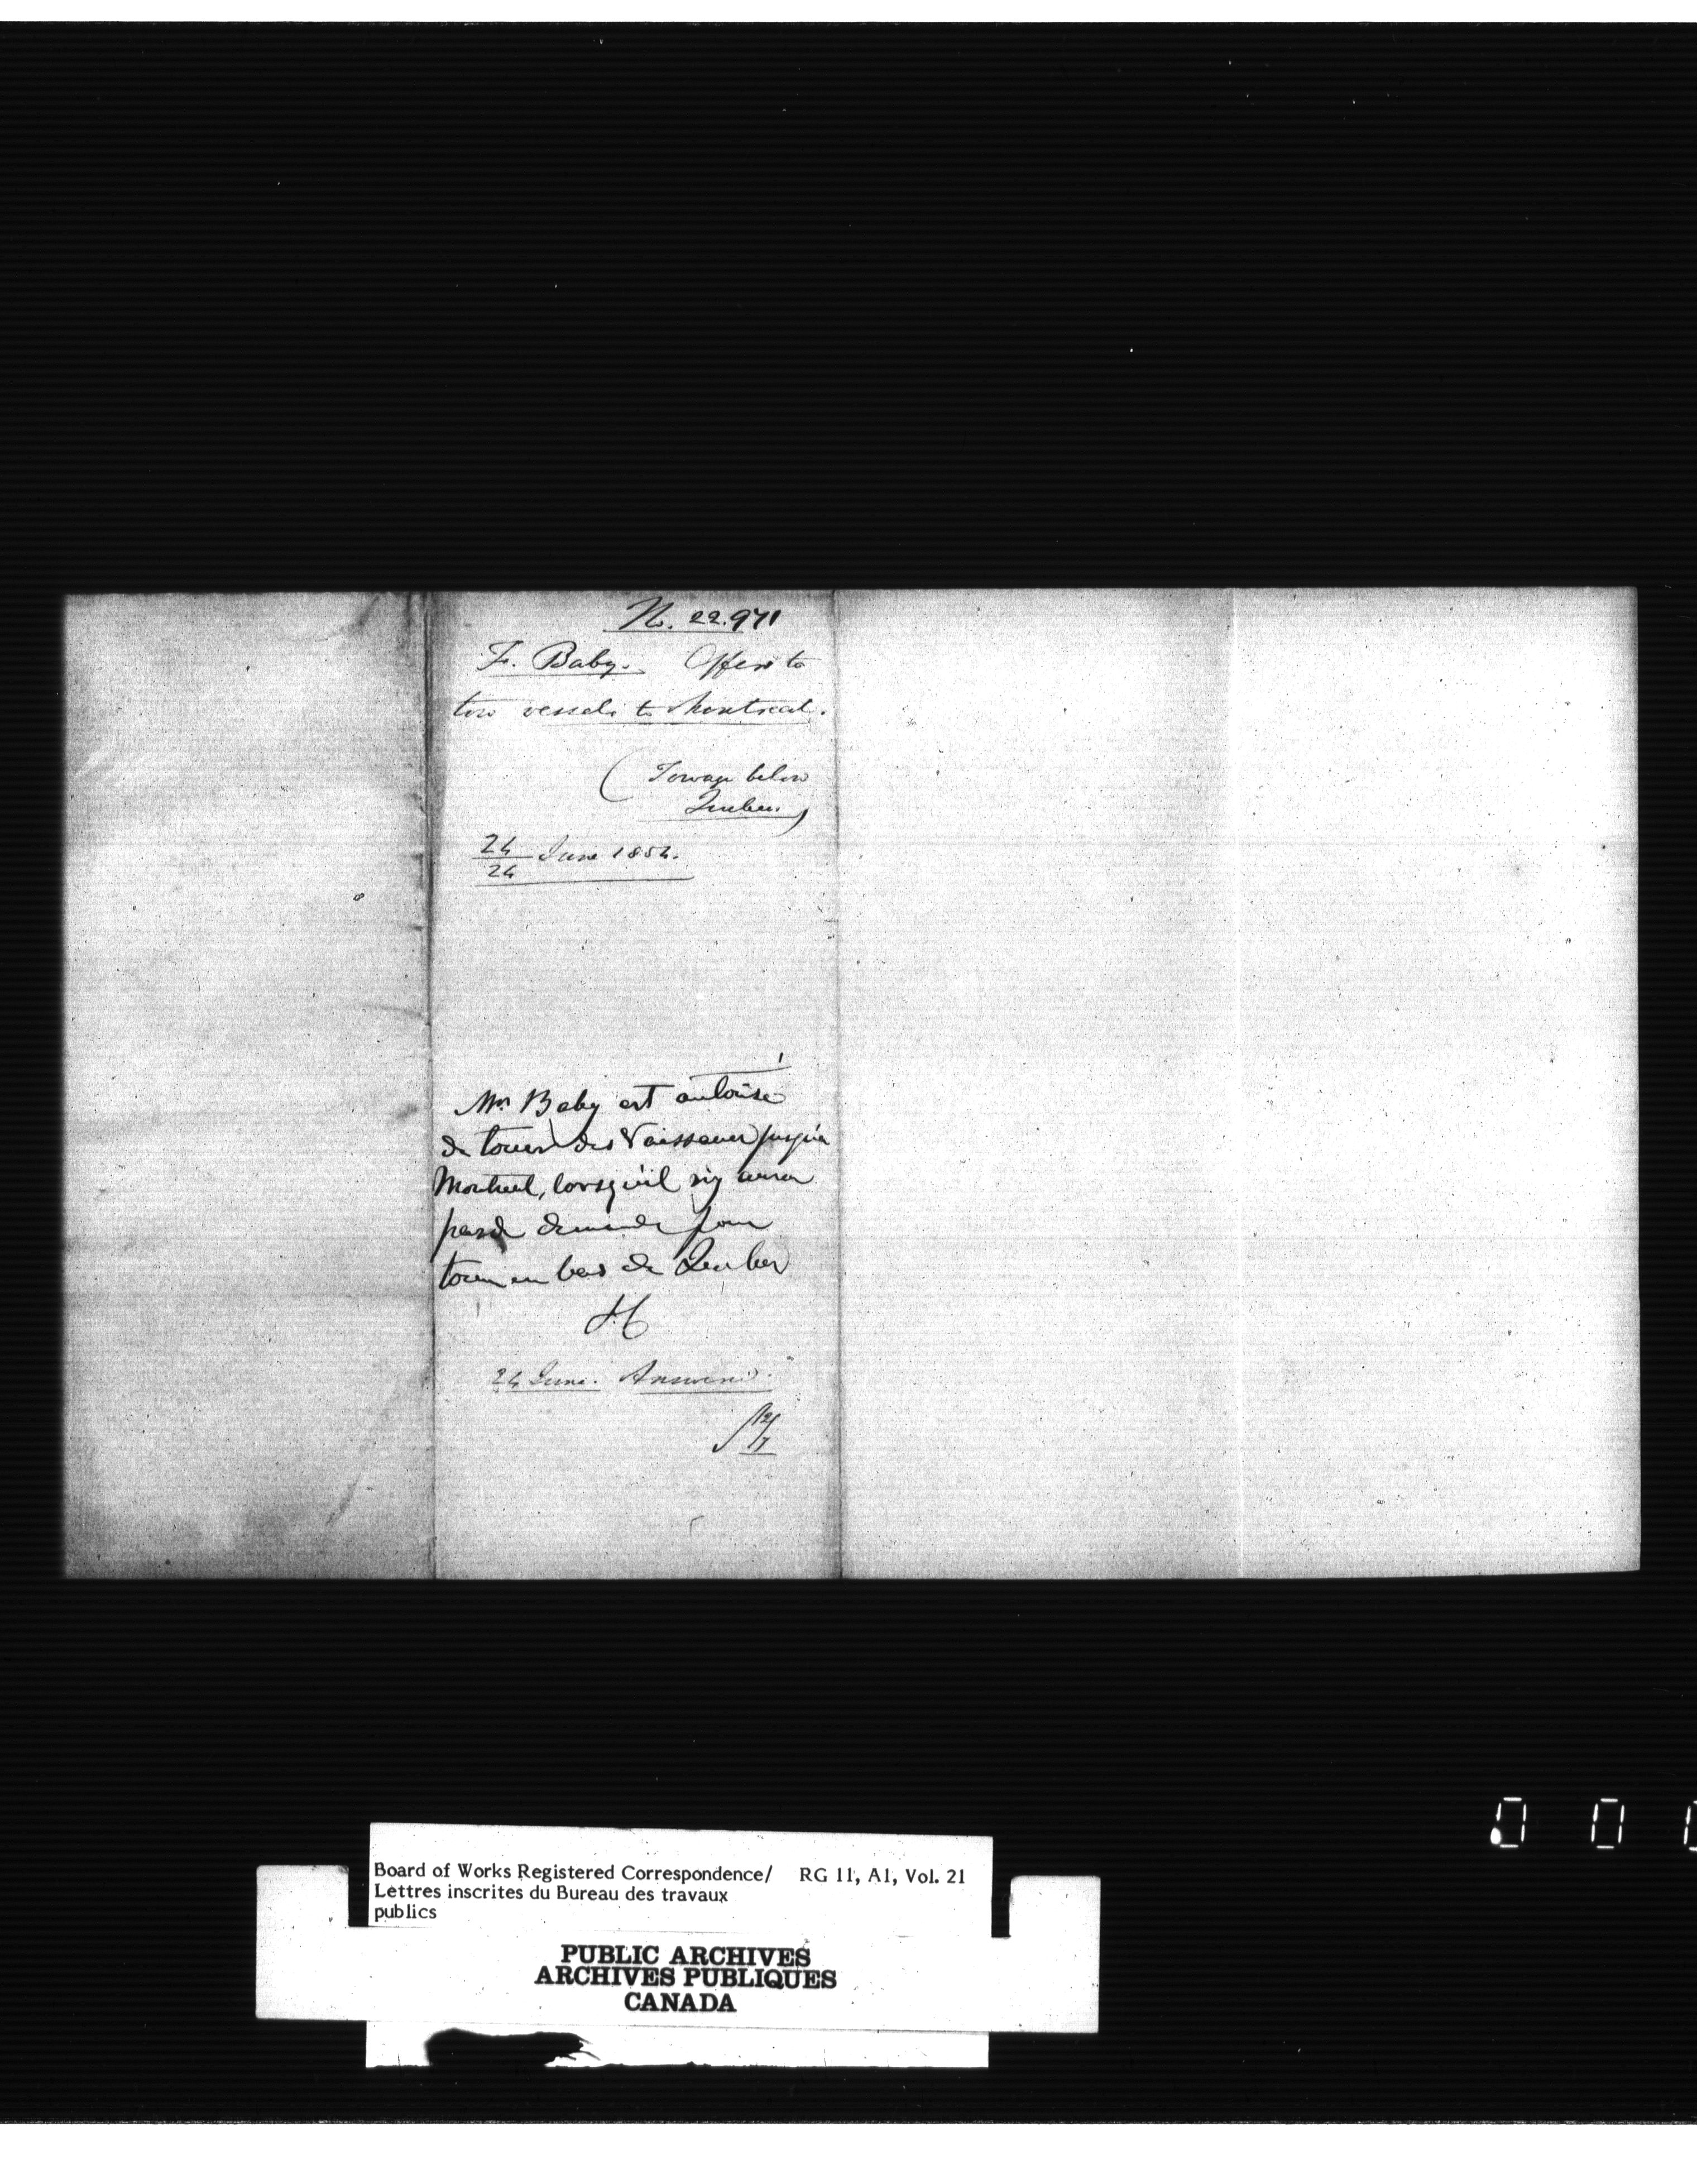 No. 22.971
F. Baby. Offers to
tow vessels to Montreal.
(Towage below
Quebec.)
24
24 June 1854.
Mr. Baby est autorisé
de touer des Vaisseaux jusqu'à
Montreal, lorsqu'il n'y aura
pas de demande pour
touer en bas de Quebec
24 June. Answered.
Board of Works Registered Correspondence/ RG 11, A1, Vol. 21
Lettres inscrites du Bureau des travaux
publics
PUBLIC ARCHIVES
ARCHIVES PUBLIQUES
CANADA
0 0